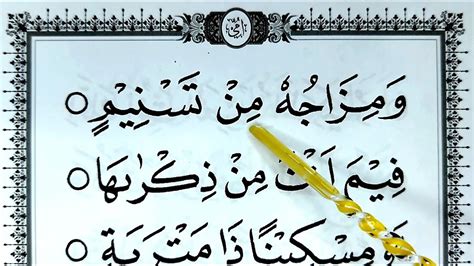 وَمِزَاجُهٗ مِنْ تَسْنِيْمٍ ○
فِيْمَ اَنْتَ مِنْ ذِكْرٰىهَا ○
مِسْكِيْنًا ذَا مَتْرَبَةٍ ○